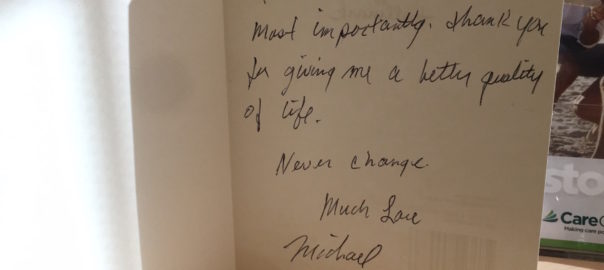 Most importantly. thank you
for giving me a better quality
of life.
Never change.
Much Love
Michael
sto
Care
Making care